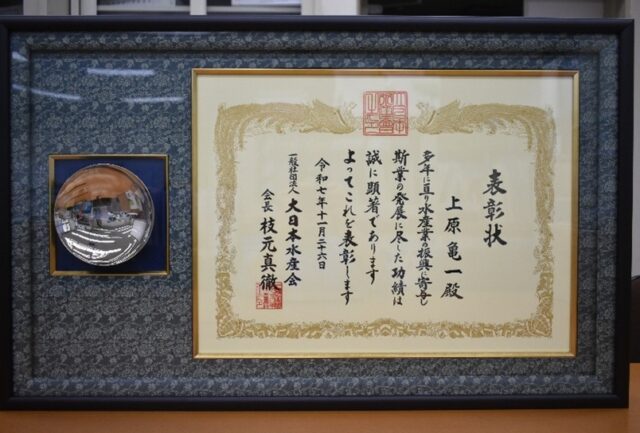 表彰状
上原亀一殿
多年に亘り水産業の振興に寄与し
斯業の発展に尽した功績は
誠に顕著であります
よってこれを表彰します
令和七年十一月二十六日
一般社団法人 大日本水産会
会長 枝元真徹